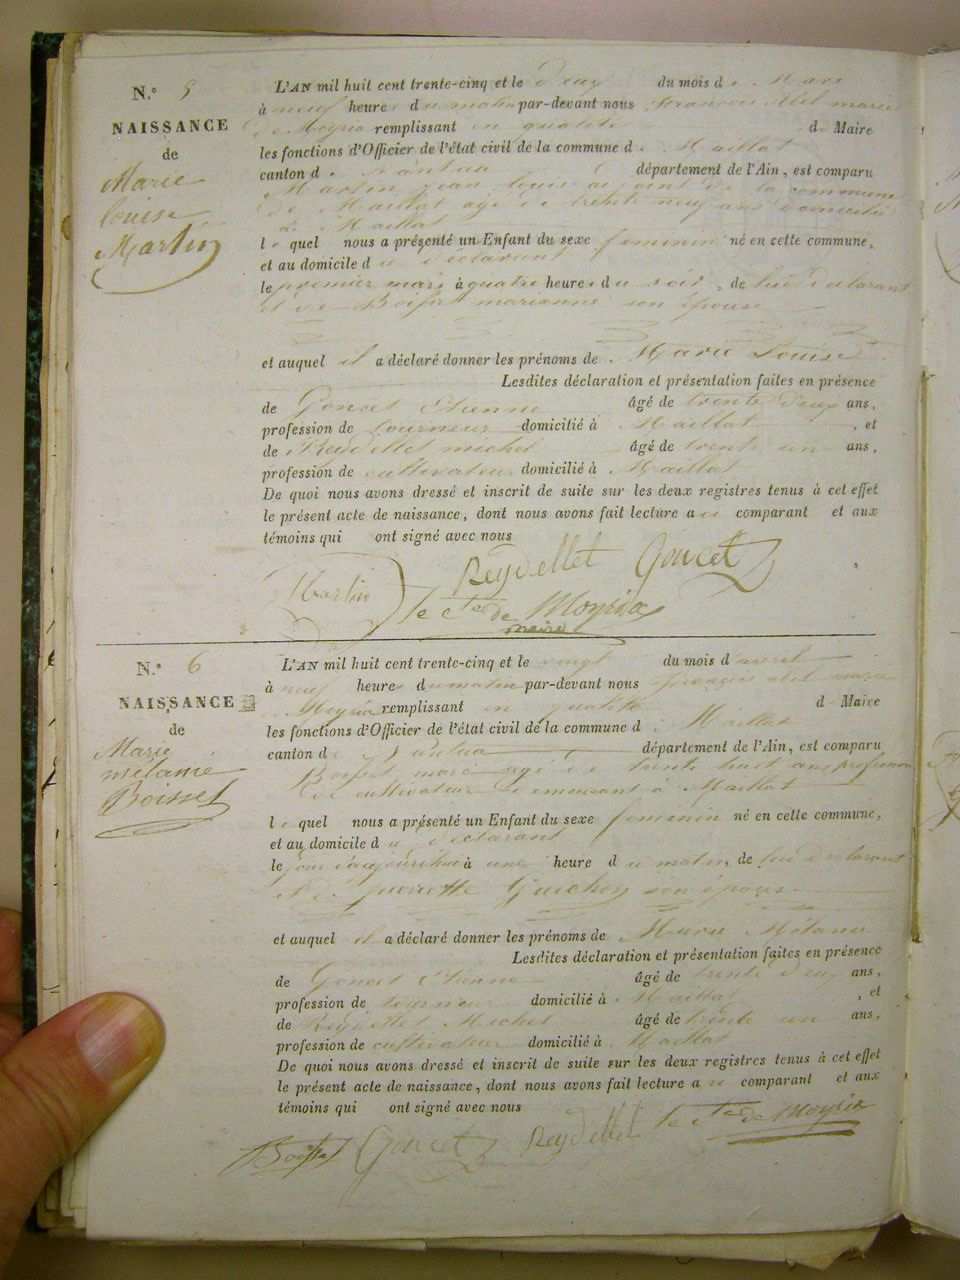 N.° 5
NAISSANCE
de
Marie
Louise
Martin
L'AN mil huit cent trente-cinq et le deux du mois de Mars
à neuf heures du matin par-devant nous François Abel marie
de Moyria remplissant en qualité de Maire
les fonctions d'Officier de l'état civil de la commune de Maillat
canton de Nantua département de l'Ain, est comparu
Martin jean louis adjoint de la commune
de Maillat agé de trente neuf ans domicilié
à Maillat
lequel nous a présenté un Enfant du sexe feminin né en cette commune,
et au domicile du déclarant
le premier mars à quatre heures du soir, de lui déclarant
et de marianne son épouse
et auquel il a déclaré donner les prénoms de Marie Louise
Lesdites déclaration et présentation faites en présence
de Goncet Etienne âgé de trente deux ans,
profession de tourneur domicilié à Maillat, et
de Reydellet michel âgé de trente un ans,
profession de cultivateur domicilié à Maillat
De quoi nous avons dressé et inscrit de suite sur les deux registres tenus à cet effet
le présent acte de naissance, dont nous avons fait lecture au comparant et aux
témoins qui ont signé avec nous
Martin Reydellet Goncet
le cte de Moyria
maire
N.° 6
NAISSANCE
de
Marie
mélanie
Boisset
L'AN mil huit cent trente-cinq et le vingt du mois d'avril
à neuf heures du matin par-devant nous françois abel marie
de Moyria remplissant en qualité de Maire
les fonctions d'Officier de l'état civil de la commune de Maillat
canton de Nantua département de l'Ain, est comparu
Boisset marc agé de trente huit ans profession
de cultivateur demeurant à Maillat
lequel nous a présenté un Enfant du sexe feminin né en cette commune,
et au domicile du déclarant
le jour d'aujourd'hui à une heure du matin, de lui déclarant
et de pierrette Guichon son épouse
et auquel il a déclaré donner les prénoms de Marie Mélanie
Lesdites déclaration et présentation faites en présence
de Goncet Etienne âgé de trente deux ans,
profession de tourneur domicilié à Maillat, et
de Reydellet Michel âgé de trente un ans,
profession de cultivateur domicilié à Maillat
De quoi nous avons dressé et inscrit de suite sur les deux registres tenus à cet effet
le présent acte de naissance, dont nous avons fait lecture au comparant et aux
témoins qui ont signé avec nous
Boisset Goncet Reydellet le cte de Moyria